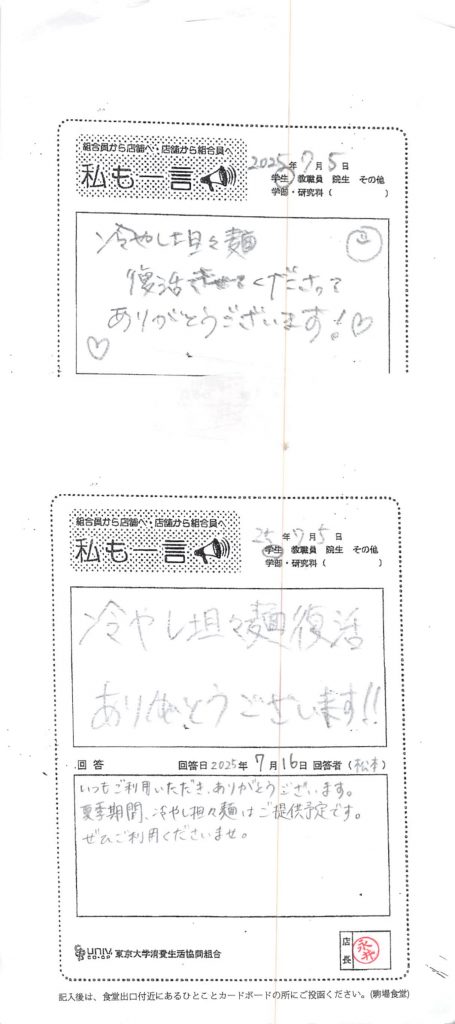 組合員から店舗へ・店舗から組合員へ
私も一言
2025年7月5日
学生 教職員 院生 その他
学部・研究科( )
冷やし坦々麺
復活させてくださって
ありがとうございます!♡
♡
組合員から店舗へ・店舗から組合員へ
私も一言
25年7月5日
学生 教職員 院生 その他
学部・研究科( )
冷やし坦々麺復活
ありがとうございます!!
回答 回答日2025年7月16日 回答者(松本)
いつもご利用いただき、ありがとうございます。
夏季期間、冷やし担々麺はご提供予定です。
ぜひご利用くださいませ。
univ. CO-OP 東京大学消費生活協同組合
店長
記入後は、食堂出口付近にあるひとことカードボードの所にご投函ください。(駒場食堂)